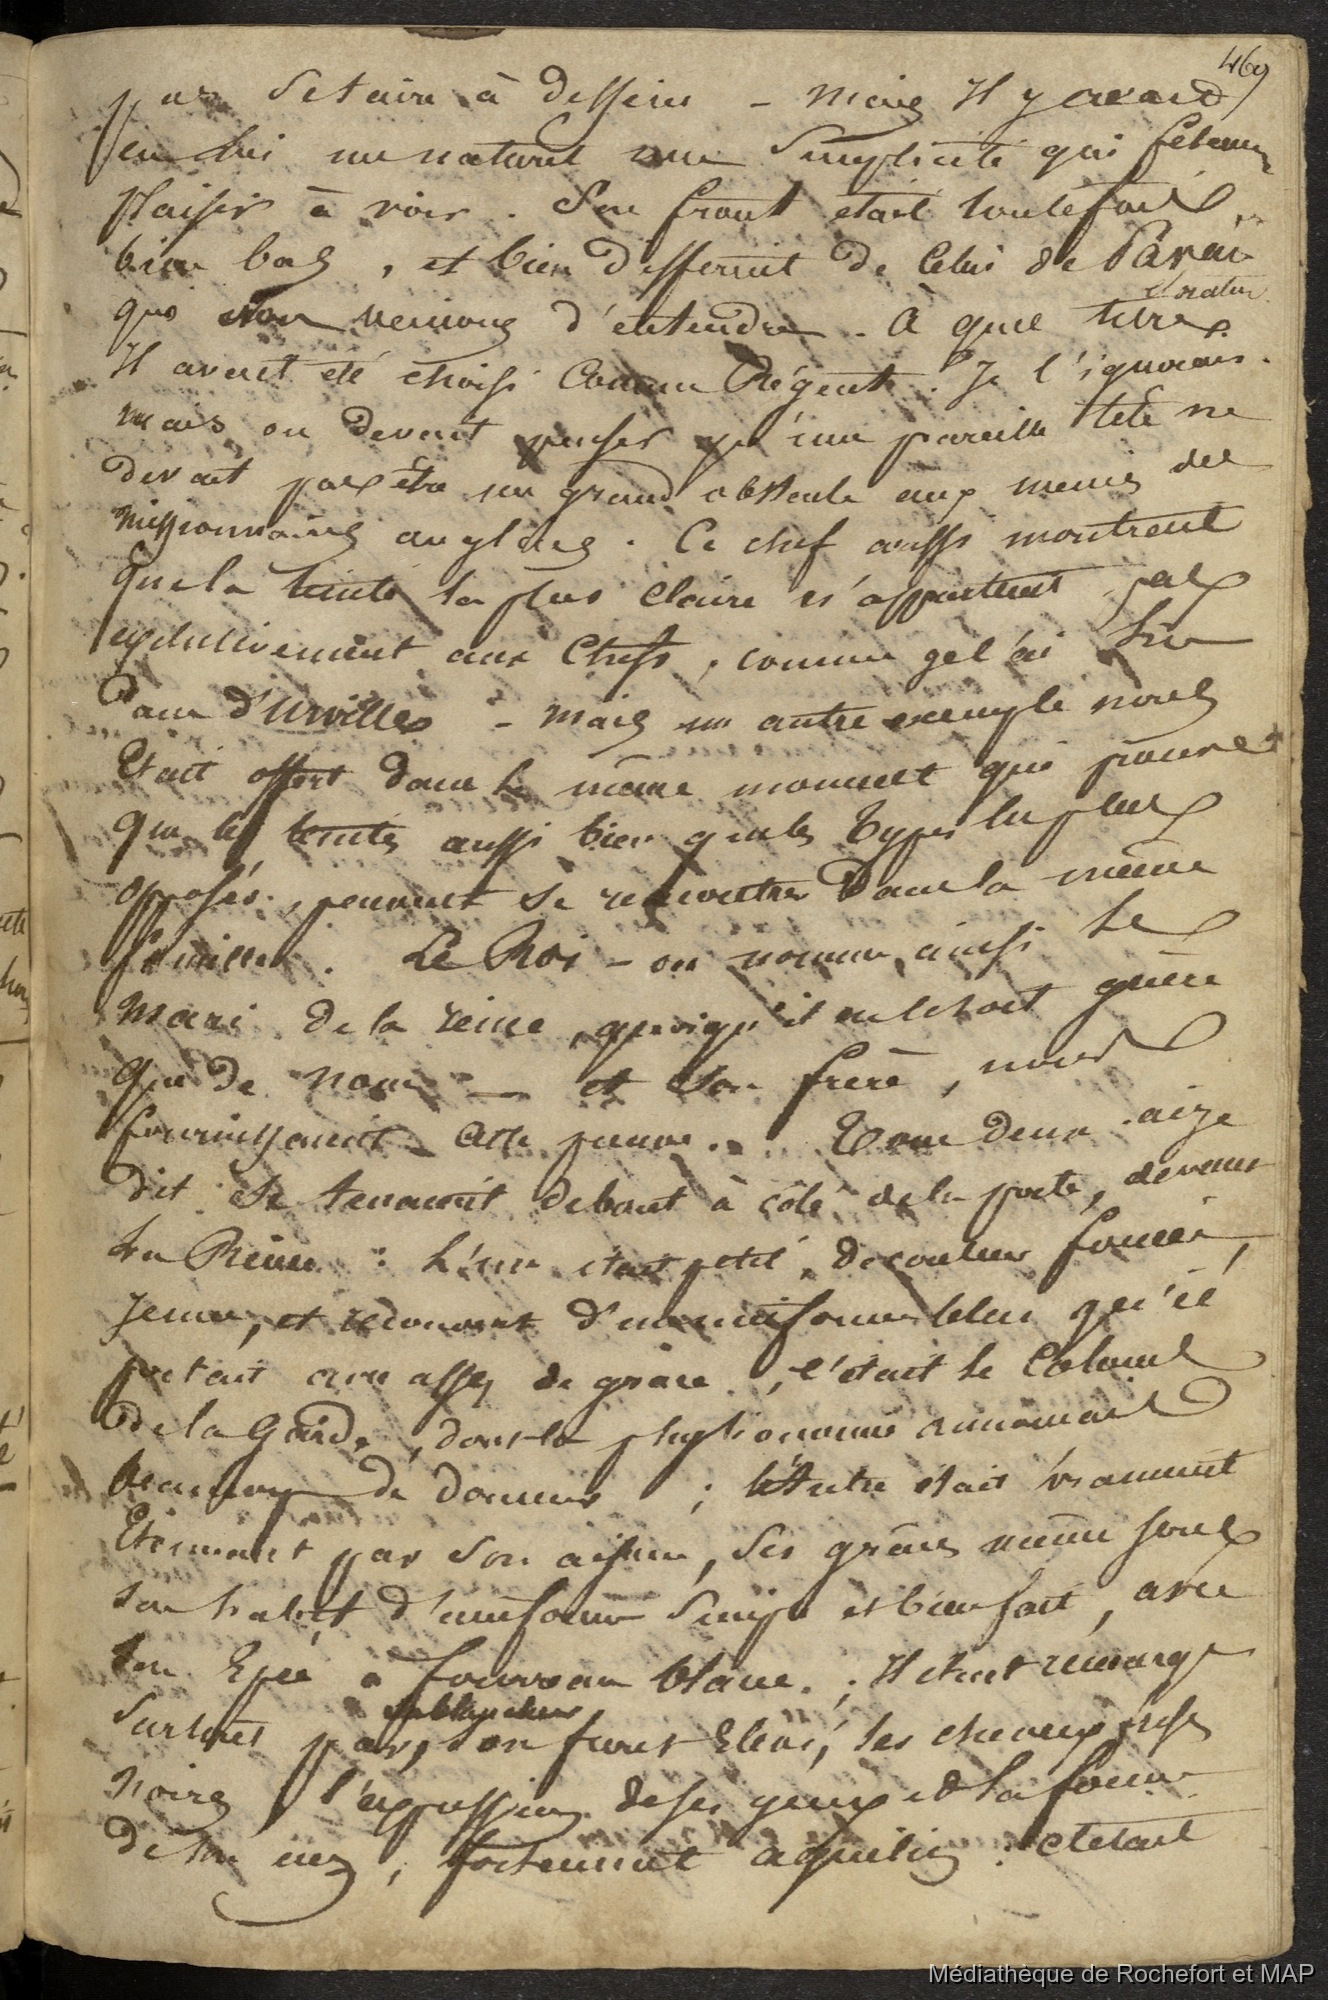 469
pas Se taire à dessein - mais Il y avait
en lui un naturel une Simplicité qui fesaient
plaisir à voir. Son front était toutefois
bien bas, et bien different de Celui de Paraï
orateur
que nous venions d'entendre. à quel titre
Il avait été choisi Comme Régent. Je l'ignorais.
mais on devait penser qu'une pareille tête ne
devait pas être un grand obstacle aux menées des
missionnaires anglais. Ce chef aussi montrait
que la teinte la plus Claire n'appartient pas
exclusivement aux Chefs, comme je l'ai lu
Dans d'Urville - mais un autre exemple nous
Etait offert dans le même moment qui prouve
que les teintes aussi bien que les types les plus
opposés, peuvent se rencontrer Dans la même
famille. Le Roi - on nomme ainsi le
Mari de la reine, quoiqu'il ne le soit guère
que de nom — et Son frère, nous
fournissaient Cette preuve. Tous deux
dit Se tenaient debout à côté de la porte, devant
La Reine : L'un était petit, de couleur foncée,
Jeune, et recouvert d'un uniforme bleu qu'il
portait avec assez de grâce, c'était le Colonel
de la Garde, dont la physionomie annonçait
beaucoup de douceur ; L'Autre était vraiment
Etonnant par Son aisance, Ses grâces même sous
Son habit d'uniforme Simple et bien fait, avec
Son Epée à fourreau blanc. ; Il était remarqué
Surtout par, Son front Elevé, Ses cheveux
noirs, l'expression de Ses yeux et la forme
de Son nez, fortement aquilin : c'était
Médiathèque de Rochefort et MAP